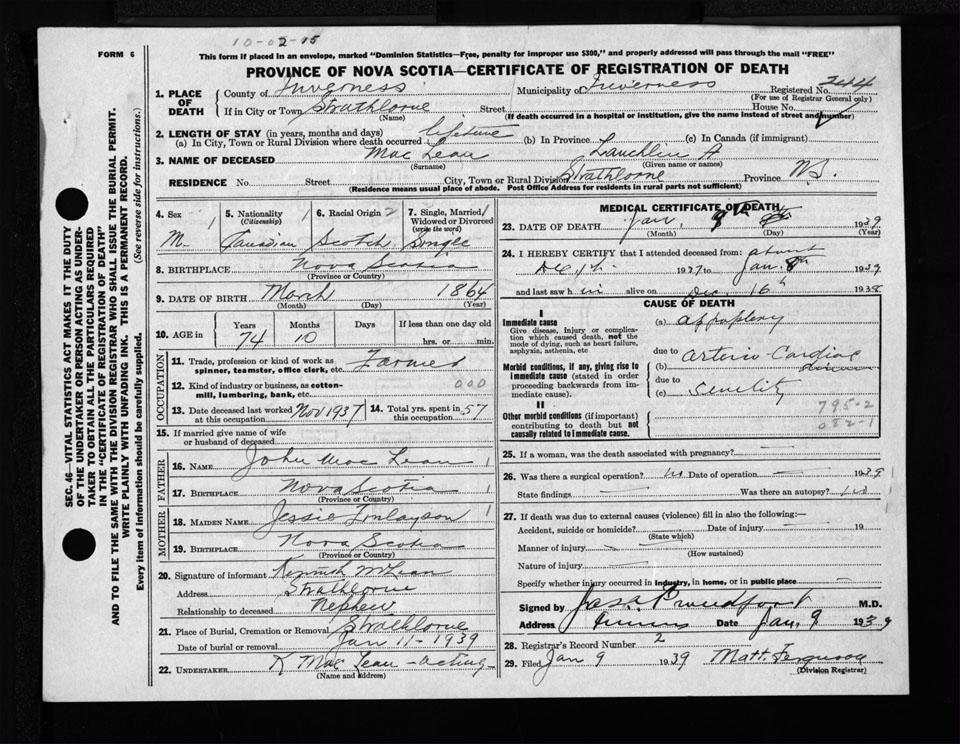 10-02-15
FORM 6
This form if placed in an envelope, marked "Dominion Statistics—Free, penalty for improper use $300," and properly addressed will pass through the mail "FREE"
PROVINCE OF NOVA SCOTIA—CERTIFICATE OF REGISTRATION OF DEATH
SEC. 46—VITAL STATISTICS ACT MAKES IT THE DUTY
OF THE UNDERTAKER OR PERSON ACTING AS UNDER-
TAKER TO OBTAIN ALL THE PARTICULARS REQUIRED
IN THE "CERTIFICATE OF REGISTRATION OF DEATH"
AND TO FILE THE SAME WITH THE DIVISION REGISTRAR WHO SHALL ISSUE THE BURIAL PERMIT.
WRITE PLAINLY WITH UNFADING INK. THIS IS A PERMANENT RECORD.
Every item of information should be carefully supplied. (See reverse side for instructions.)
1. PLACE OF DEATH
County of Inverness Municipality of Inverness Registered No. 244
(For use of Registrar General only)
If in City or Town Strathlorne Street House No.
(Name) (If death occurred in a hospital or institution, give the name instead of street and number)
2. LENGTH OF STAY (in years, months and days)
(a) In City, Town or Rural Division where death occurred lifetime (b) In Province (c) In Canada (if immigrant)
3. NAME OF DECEASED MacLean Lauchlin A
(Surname) (Given name or names)
RESIDENCE No. Street City, Town or Rural Division Strathlorne Province N.S.
(Residence means usual place of abode. Post Office Address for residents in rural parts not sufficient)
4. Sex M. 1
5. Nationality (Citizenship) Canadian 1
6. Racial Origin Scotch 2
7. Single, Married Widowed or Divorced (write the word) Single 1
8. BIRTHPLACE Nova Scotia
(Province or Country)
9. DATE OF BIRTH March 1864
(Month) (Day) (Year)
10. AGE in Years 74 Months 10 Days If less than one day old hrs. or min.
OCCUPATION
11. Trade, profession or kind of work as spinner, teamster, office clerk, etc. Farmer
12. Kind of industry or business, as cotton-mill, lumbering, bank, etc. 000
13. Date deceased last worked at this occupation Nov 1937
14. Total yrs. spent in this occupation 57
15. If married give name of wife or husband of deceased
FATHER
16. NAME John MacLean 1
17. BIRTHPLACE Nova Scotia 1
(Province or Country)
MOTHER
18. MAIDEN NAME Jessie Finlayson 1
19. BIRTHPLACE Nova Scotia
(Province or Country)
20. Signature of informant Kenneth McLean
Address Strathlorne
Relationship to deceased Nephew
21. Place of Burial, Cremation or Removal Strathlorne
Date of burial or removal Jan 11-1939
22. UNDERTAKER K MacLean -acting-
(Name and Address)
MEDICAL CERTIFICATE OF DEATH
23. DATE OF DEATH Jan, 9th 8th 1939
(Month) (Day) (Year)
24. I HEREBY CERTIFY that I attended deceased from: about
1937 to Jan. 8th 1939
and last saw him alive on Dec 16th 1938
CAUSE OF DEATH
I
Immediate cause
Give disease, injury or complication which caused death, not the mode of dying, such as heart failure, asphyxia, asthenia, etc
(a) appoplexy
due to
Morbid conditions, if any, giving rise to immediate cause (stated in order proceeding backwards from immediate cause).
(b) Arterio-Cardiac
due to
(c) Senility
II
Other morbid conditions (if important) contributing to death but not causally related to immediate cause.
795-2
082-1
25. If a woman, was the death associated with pregnancy?
26. Was there a surgical operation? no Date of operation 1939
State findings Was there an autopsy? no
27. If death was due to external causes (violence) fill in also the following:
Accident, suicide or homicide? Date of injury 19
(State which)
Manner of injury
(How sustained)
Nature of injury
Specify whether injury occurred in industry, in home, or in public place
Signed by Jas. Proudfoot M.D.
Address Inverness Date Jan. 9 1939
28. Registrar's Record Number 2
29. Filed Jan 9 1939 Matt. Ferguson
(Division Registrar)